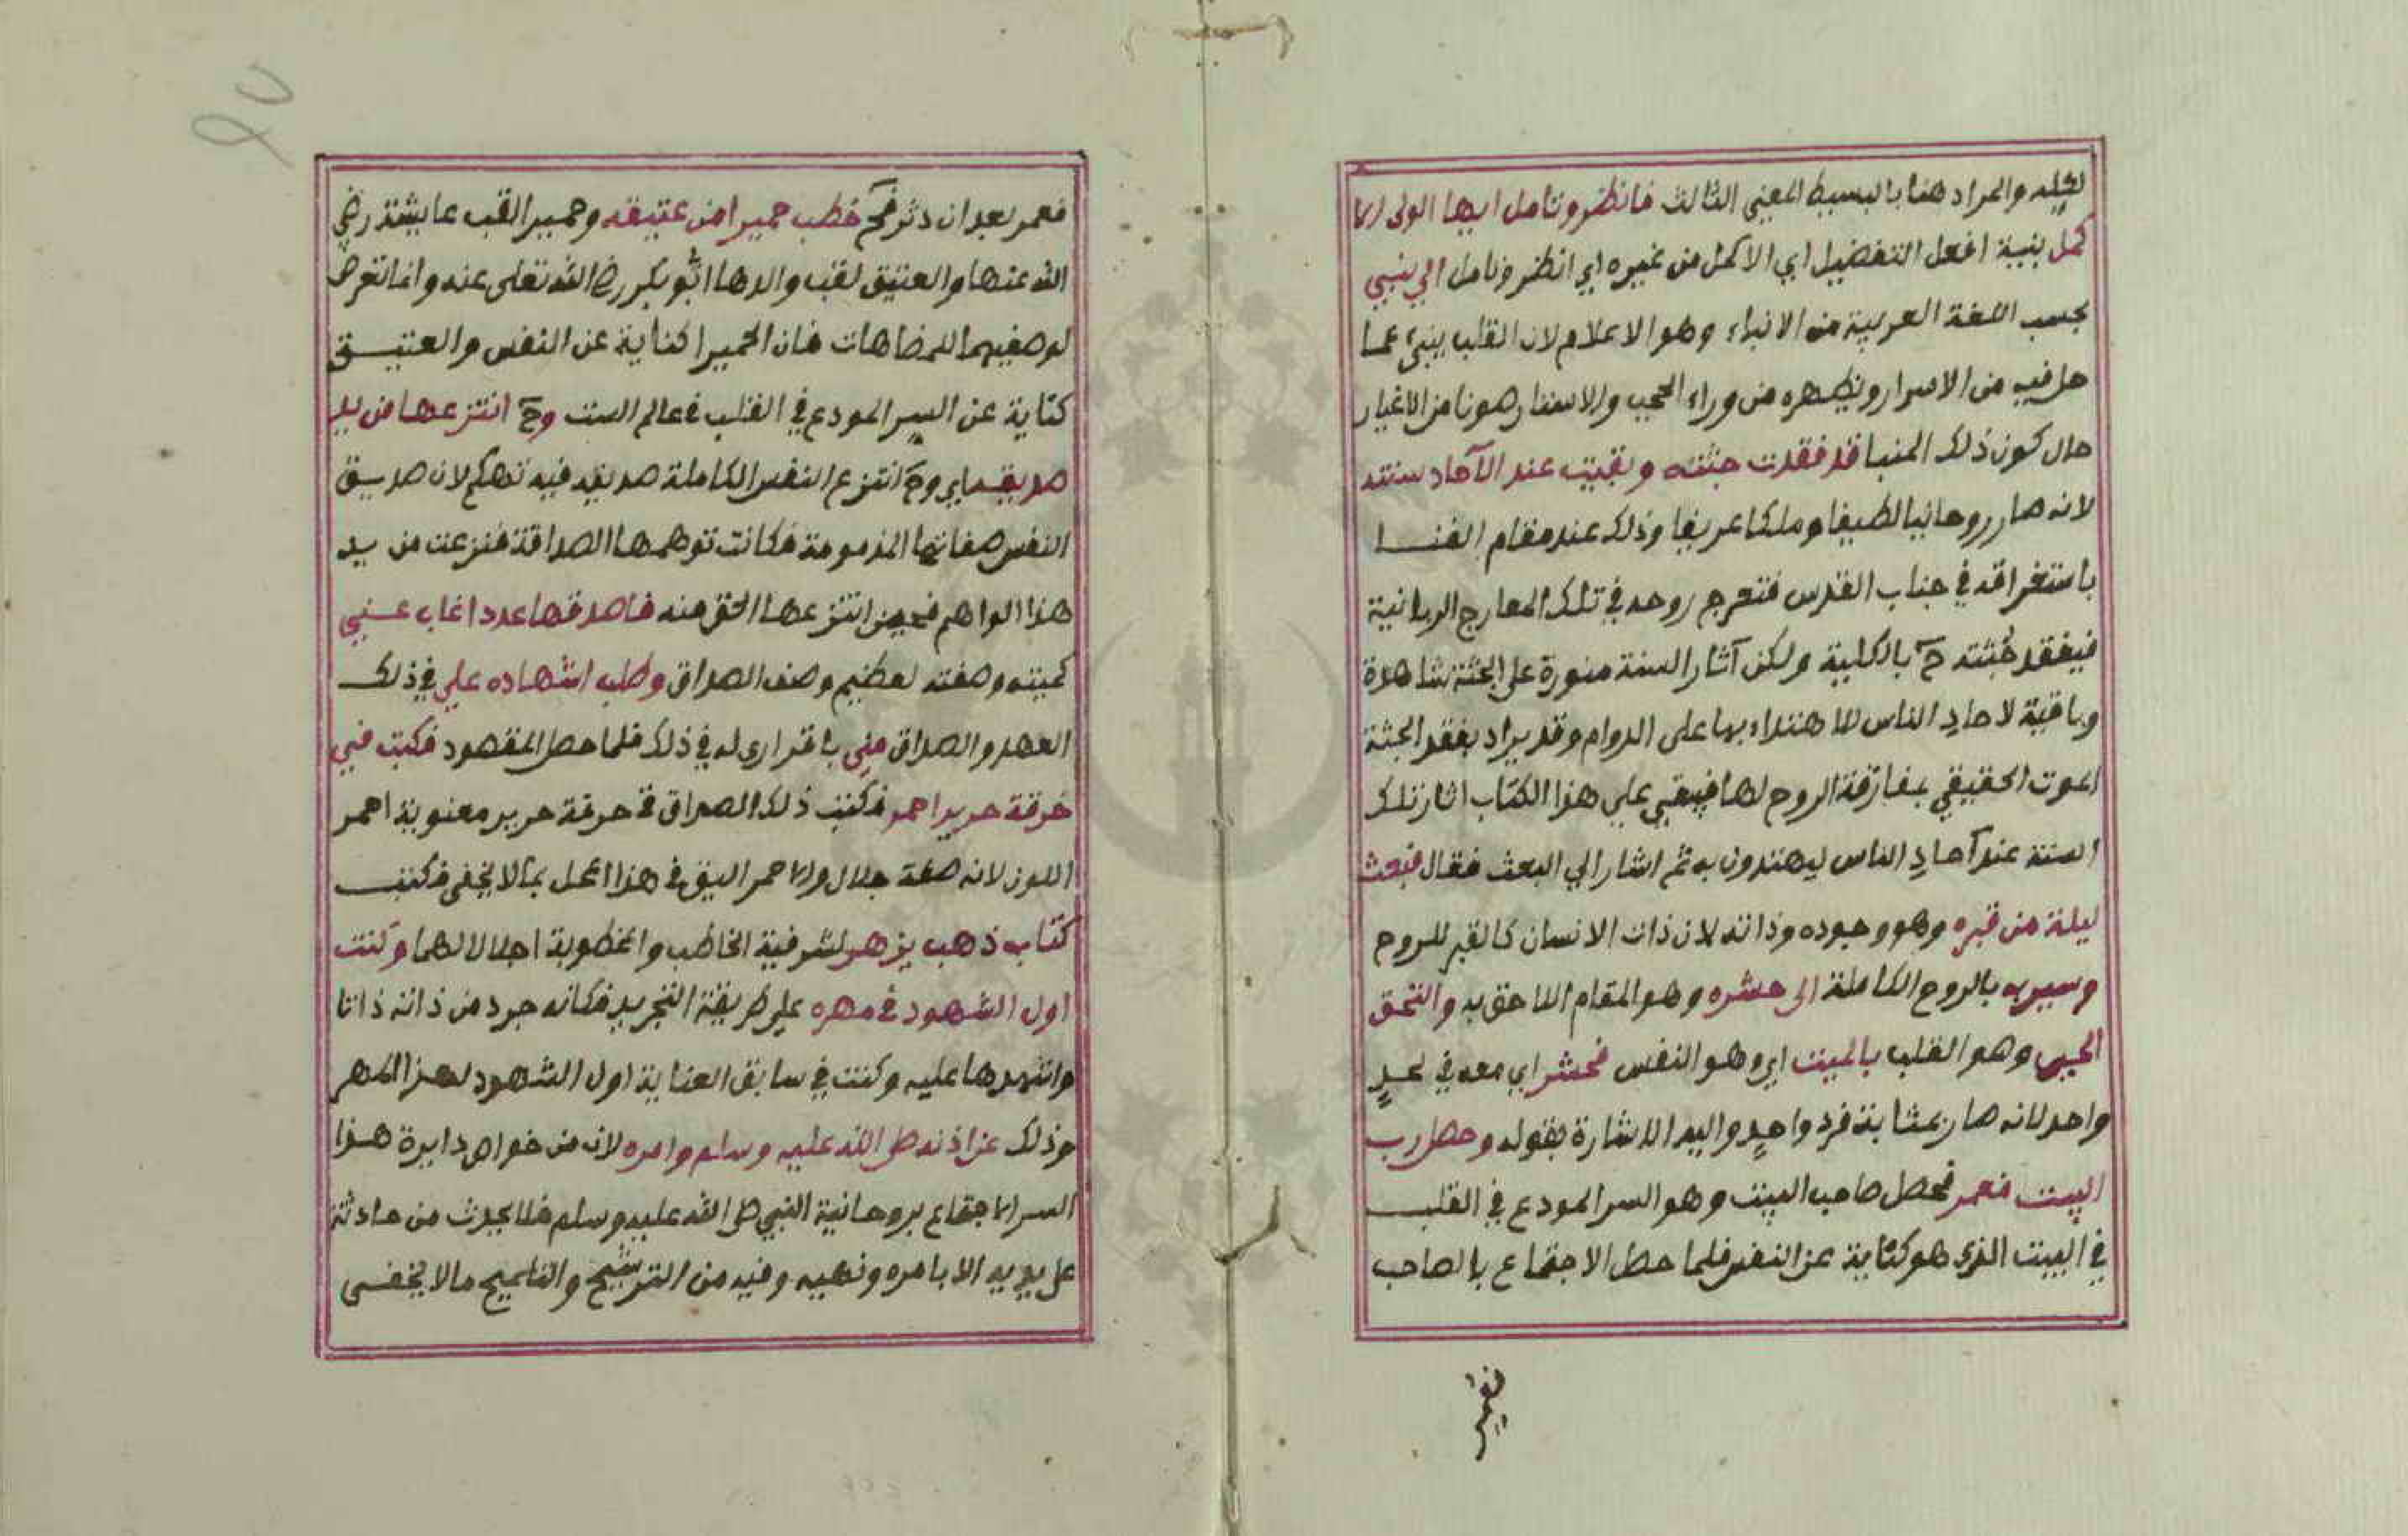 لكله والمراد هنا بالبسيط المعنى الثالث فانظر وتامل ايها الولى الا
كمل بنية افعل التفضيل اي الاكمل من غيره اي انظر وتامل الي ينبي
بحسب اللغة العربية من الانباء وهو الاعلام لان القلب ينبئ عما
حل فيه من الاسرار ويظهره من وراء الحجب والاستار هونا من الاغيار
حال كون ذلك المنبا قد فقدت جثته وبقيت عند الآحاد سنته
لانه صار روحانيا لطيفا وملكا عريفا وذلك عند مقام الفنا
باستغراقه في جناب القدس فتعرج روحه في تلك المعارج الربانية
فيفقد جُثته حٓ بالكلية ولكن آثار السنة منورة على الجثة شاهدة
وباقية لاحادِ الناس للاهتداء بها على الدوام وقد يراد بفقد الجثة
الموت الحقيقي بمفارقة الروح لها فيبقي علي هذا الكتاب اثار تلك
السنة عند آحادِ الناس ليهتدون به ثم اشار الي البعث فقال فبعث
ليلة من قبره وهو وجوده وذاته لان ذات الانسان كالقبر للروح
وسير به بالروح الكاملة الى حشره وهو المقام اللاحق به والتحق
الحيى وهو القلب بالميت اي وهو النفس فحشر اي معه في لحدٍ
واحد لانه صار بمثابة فرد واحدٍ واليه الاشارة بقوله وحصل رب
البيت فعمر فحصل صاحب البيت وهو السر المودع في القلب
في البيت الذى هو كناية عن النفس فلما حصل الاجتماع بالصاحب
فعمر
فعمر بعد ان دثر فحٓ خطب حميرا من عتيقه وحميرا لقب عايشة رضي
الله عنها والعتيق لقب والدها ابُو بكر رضي الله تعلى عنه وانما تعرض
لوصفيهما للمضاهات فان الحميرا كناية عن النفس والعتيق
كناية عن السر المودع في القلب في عالم الست وحٓ انتزعها من يد
صديقه اي وحٓ انتزع النفس الكاملة صديقه فيه تهكم لان صديق
النفس صفاتها المذمومة فكانت توهمها الصداقة فنزعت من يد
هذا الواهم فحين انتزعها الحق منه فاصدقها عددا غاب عني
كميته وصفته لعظيم وصف الصداق وطلب اشهاده علي في ذلك
العهد والصداق مني باقراري له في ذلك فلما حصل المقصود فكتب في
خرقة حرير احمر فكتب ذلك الصداق في خرقة حرير معنوية احمر
اللون لانه صفة جلال والاحمر اليق في هذا المحل بمالا يخفى فكتب
كتاب ذهب يزهر لشرفية الخاطب والمخطوبة اجلالا لهما وكنت
اول الشهود في مهره علي طريقة التجريد فكانه جرد من ذاته ذاتا
واشهدها عليه وكنت في سابق العناية اول الشهود لهذا المهر
وذلك عن اذنه صلى الله عليه وسلم وامره لان من خواص دايرة هذا
السر الاجتماع بروحانية النبي صلى الله عليه وسلم فلا يحدث من حادثة
على يديه الا بامره ونهيه وفيه من الترشيح والتلميح مالا يخفى